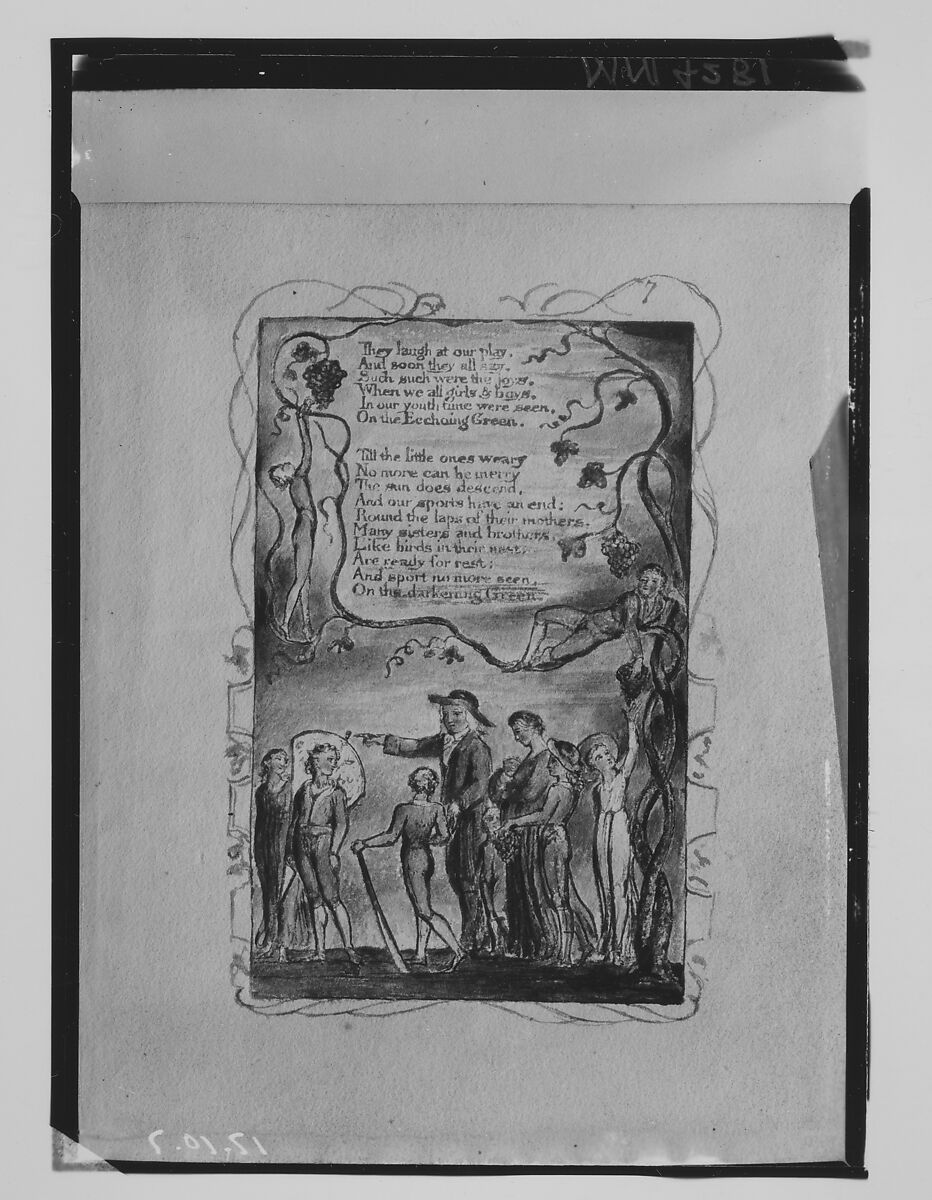 MM 4281
7
They laugh at our play,
And soon they all say,
Such such were the joys,
When we all girls & boys,
In our youth time were seen,
On the Ecchoing Green.
Till the little ones weary
No more can be merry
The sun does descend,
And our sports have an end:
Round the laps of their mothers,
Many sisters and brothers,
Like birds in their nest,
Are ready for rest;
And sport no more seen,
On the darkening Green.
17.10.7